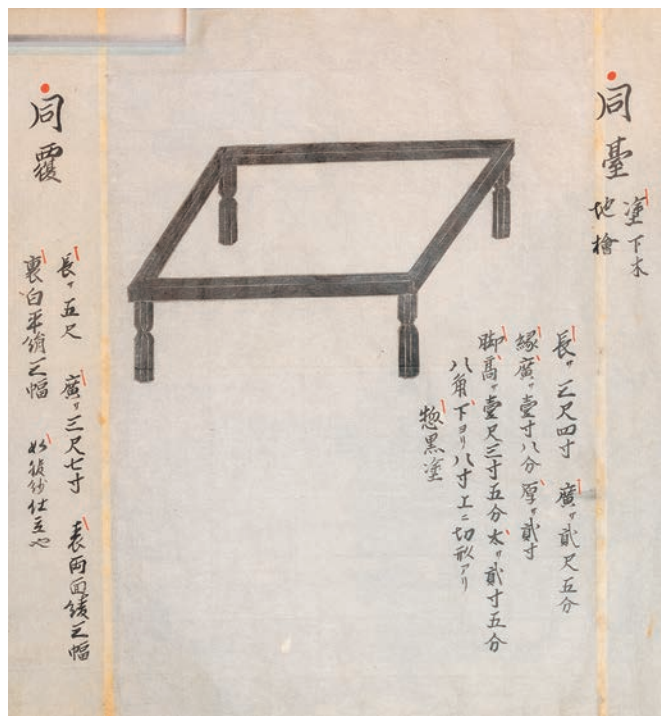 同臺
塗下木
地檜
長サ三尺四寸 廣サ貳尺五分
縁廣サ壹寸八分厚サ貳寸
脚高サ壹尺三寸五分太サ貳寸五分
八角下ヨリ八寸上ニ切形アリ
惣黒塗
同覆
長サ五尺 廣サ三尺七寸 表両面綾三幅
裏白平絹三幅 如袋仕立也